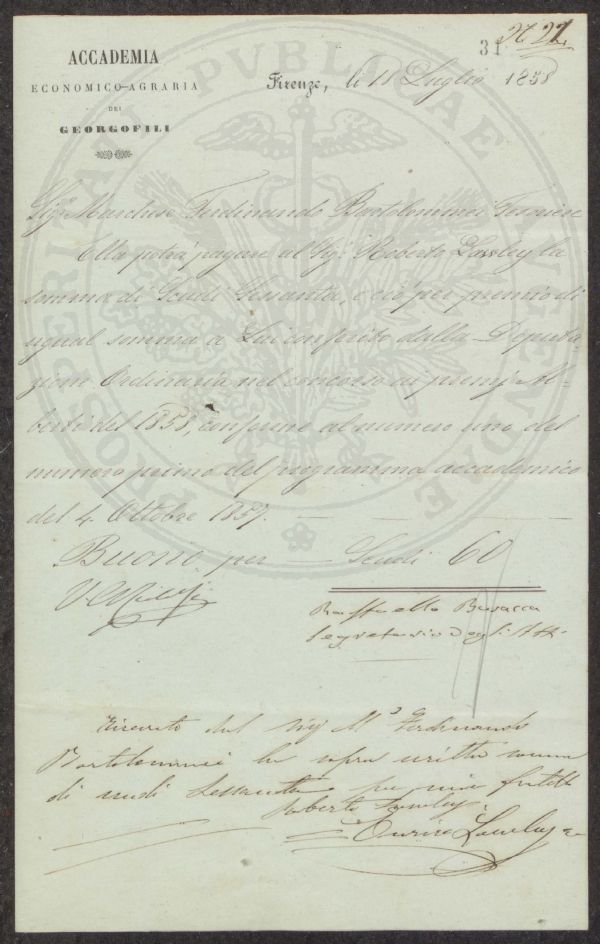 N 22
31
ACCADEMIA
ECONOMICO-AGRARIA
DEI
GEORGOFILI
Firenze, li 18 Luglio 1858
PROSPERITATI PUBLICAE AUGENDAE
Sigr Marchese Ferdinando Bartolommei Tesoriere
Ella potrà pagare al Sigr Roberto Lawley la
somma di Scudi Sessanta, e ciò per premio di
ugual somma a Lui conferito dalla Deputa-
zione Ordinaria nel concorso ai premj Al-
berti del 1858, conforme al numero uno del
numero primo del programma accademico
del 4. Ottobre 1857.
Buono per Scudi 60
Raffaello Busacca
Segretario degli Atti
Ricevuto dal Sigr M.e Ferdinando
Bartolommei la sopra scritta somma
di scudi Sessanta per mio fratello
Roberto Lawley
Enrico Lawley